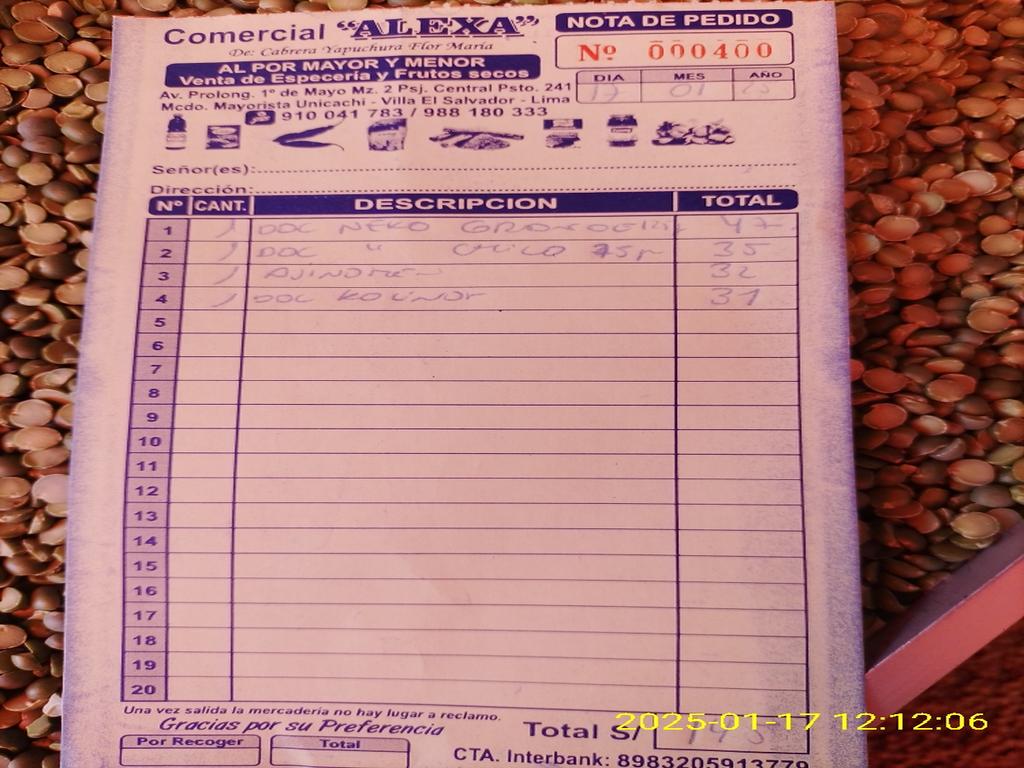 Comercial "ALEXA"
De: Cabrera Yapuchura Flor María
AL POR MAYOR Y MENOR
Venta de Especería y Frutos secos
Av. Prolong. 1º de Mayo Mz. 2 Psj. Central Psto. 241
Mcdo. Mayorista Unicachi - Villa El Salvador - Lima
910 041 783 / 988 180 333
NOTA DE PEDIDO
Nº 000400
DIA MES AÑO
17 01 25
Señor(es):
Dirección:
Nº CANT. DESCRIPCION TOTAL
1 1 DOC NEKO 47
2 1 DOC " CHICO 75gr 35
3 1 AJINOMEN 32
4 1 DOC KOLINOS 31
5
6
7
8
9
10
11
12
13
14
15
16
17
18
19
20
Una vez salida la mercadería no hay lugar a reclamo.
Gracias por su Preferencia
Total S/ 145
Por Recoger Total
CTA. Interbank: 8983205913779
2025-01-17 12:12:06